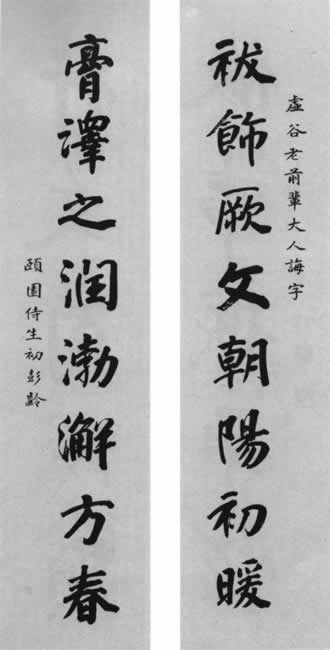 虛谷老前輩大人誨字
祓飾厥文朝陽初暖
膏澤之潤渤澥方春
頤園侍生初彭齡